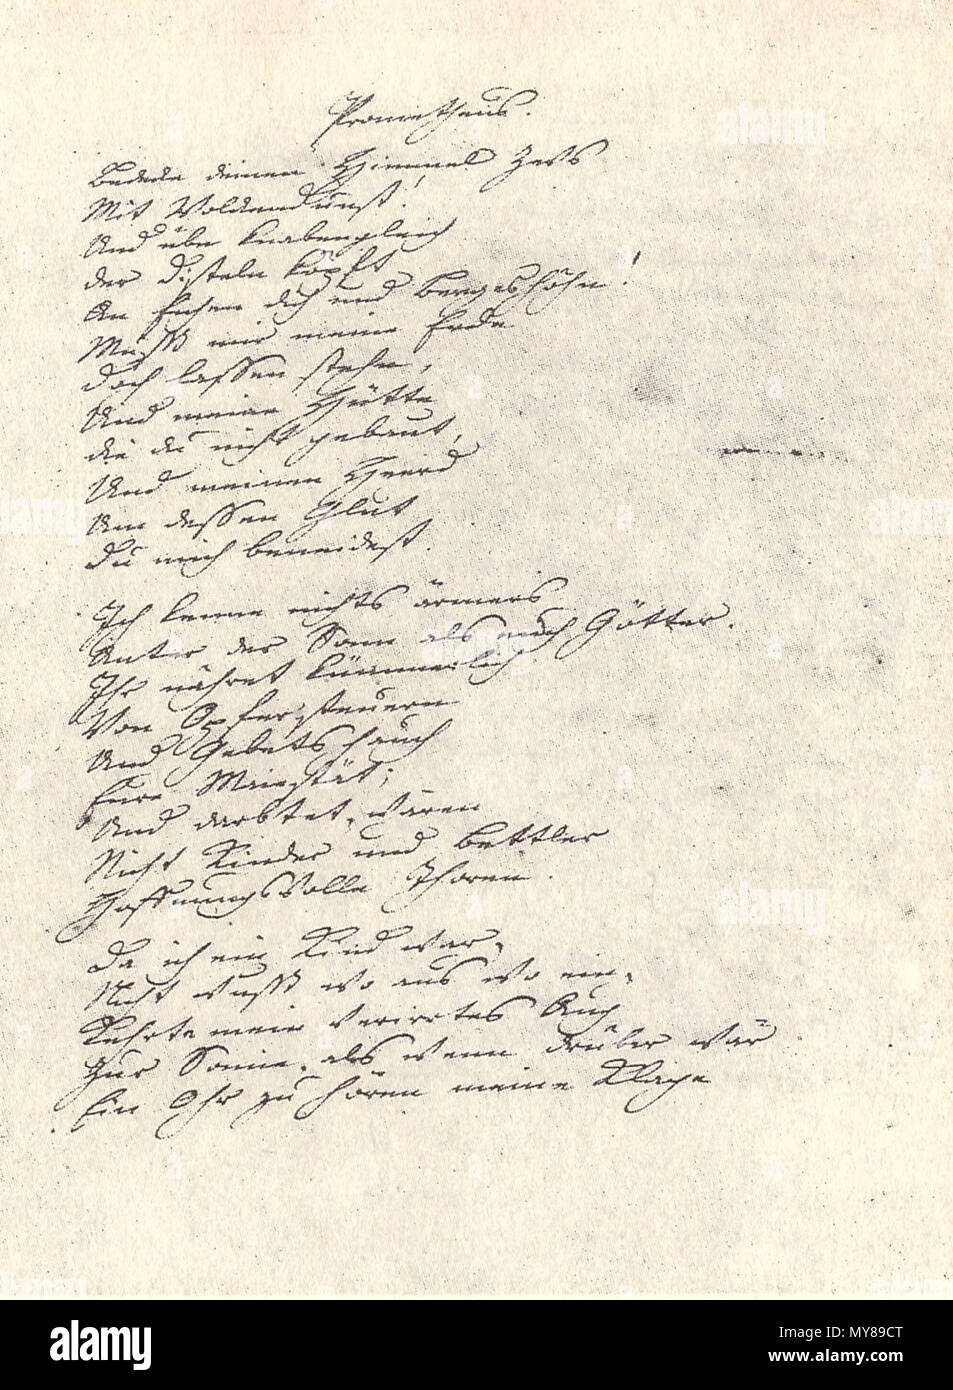 Prometheus.
Bedecke deinen Himmel Zevs
Mit Wolkendunst!
Und übe knabengleich
der Disteln köpft
An Eichen dich und Bergeshöhn!
Musst mir meine Erde
doch lassen stehn,
Und meine Hütte
die du nicht gebaut,
Und meinen Heerd
Um dessen Glut
Du mich beneidest.
Ich kenne nichts ärmers
Unter der Sonn als euch Götter.
Ihr nähret kümmerlich
Von Opfersteuern
Und Gebetshauch
Eure Majestät;
Und darbtet, wären
Nicht Kinder und Bettler
Hoffnungsvolle Thoren.
Da ich ein Kind war,
Nicht wusst wo aus wo ein,
Kehrte mein verirrtes Aug
Zur Sonne, als wenn drüber wär
Ein Ohr zu hören meine Klage
alamy
Image ID: MY89CT
www.alamy.com